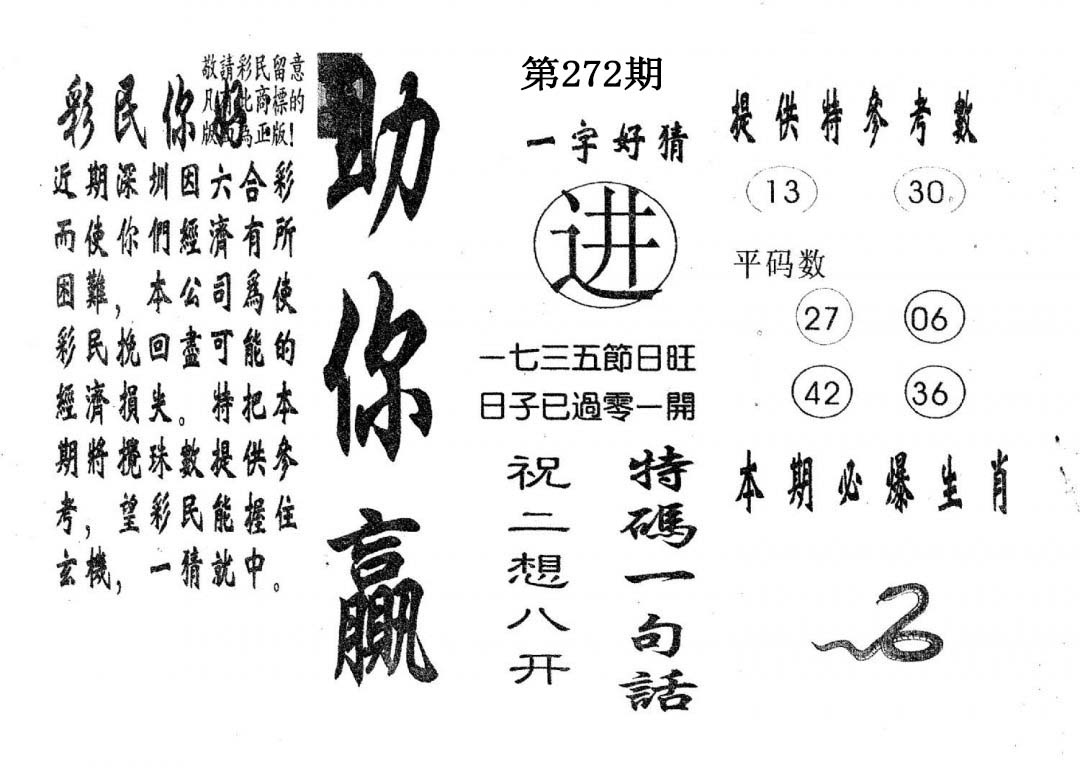 敬請彩民留意
凡有此商標的
版面為正版!
彩民你好
近期深圳因六合彩
而使你們經濟有所
困難，本公司爲使
彩民挽回盡可能的
經濟損失。特把本
期將攪珠數提供參
考，望彩民能握住
玄機，一猜就中。
助你贏
第272期
一字好猜
进
一七三五節日旺
日子已過零一開
特碼一句話
祝二想八开
提供特參考數
13 30
平码数
27 06
42 36
本期必爆生肖